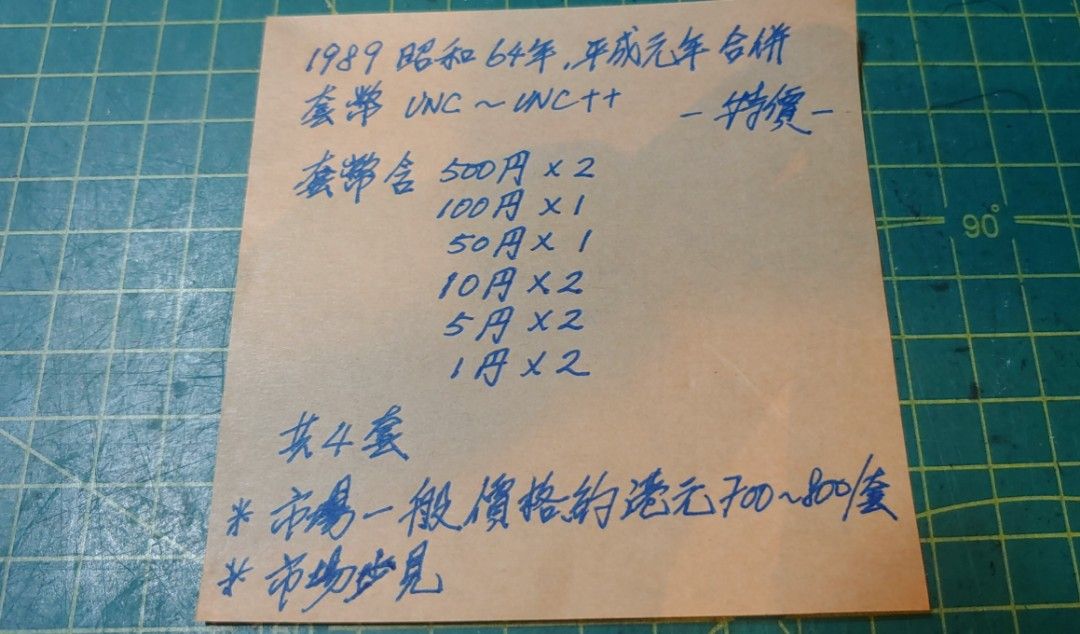 1989 昭和64年，平成元年 合併
套幣 UNC～UNC++ －特價－
套幣含 500円 x 2
100円 x 1
50円 x 1
10円 x 2
5円 x 2
1円 x 2
共4套
* 市場一般價格約港元700～800/套
* 市場少見
90°